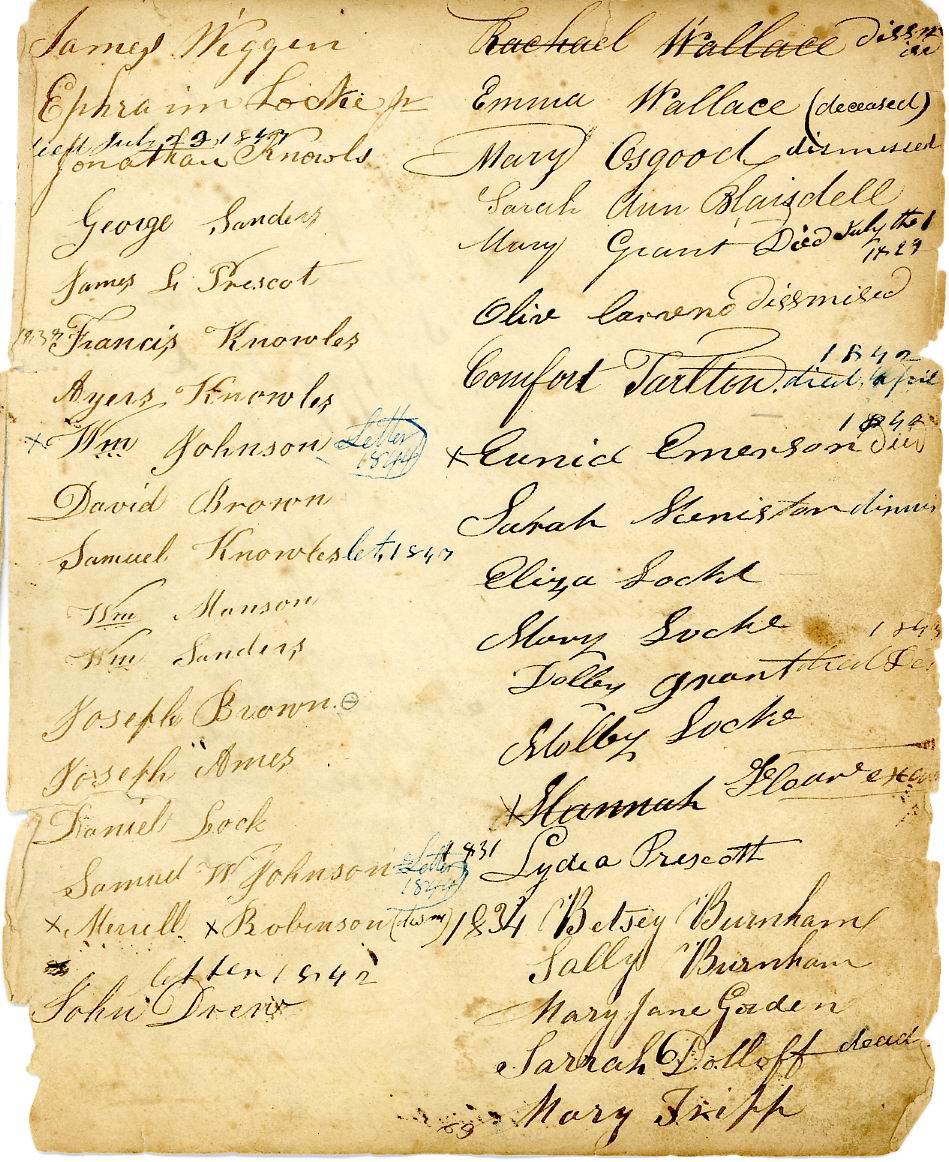 James Wiggin
Ephraim Locke jr
died July 23, 1847
Jonathan Knowls
George Sanders
James L Prescot
Francis Knowles
Ayers Knowles
x Wm Johnson Letter 1844
David Brown
Samuel Knowles let, 1847
Wm Manson
Wm Sanders
Joseph Brown.
Joseph Ames
Daniel Lock
Samuel W Johnson Letter 1844
x Merrill x Robinson
letter 1842
John Drew
Rachael Wallace
Emma Wallace (deceased)
Mary Osgood dismissed
Sarah Ann Blaisdell
Mary Grant Died July the 1
1829
Olive dissmised
1842
Comfort Tarlton died April
x Eunid Emerson died
Sarah
Eliza Locke
Mary Locke
1843
Dolley grant died
Molley Locke
x Hannah
1831 Lydea Prescott
1834 Betsey Burnham
Sally Burnham
Mary Jane Gorden
Sarrah Dolloff dead
Mary Tripp